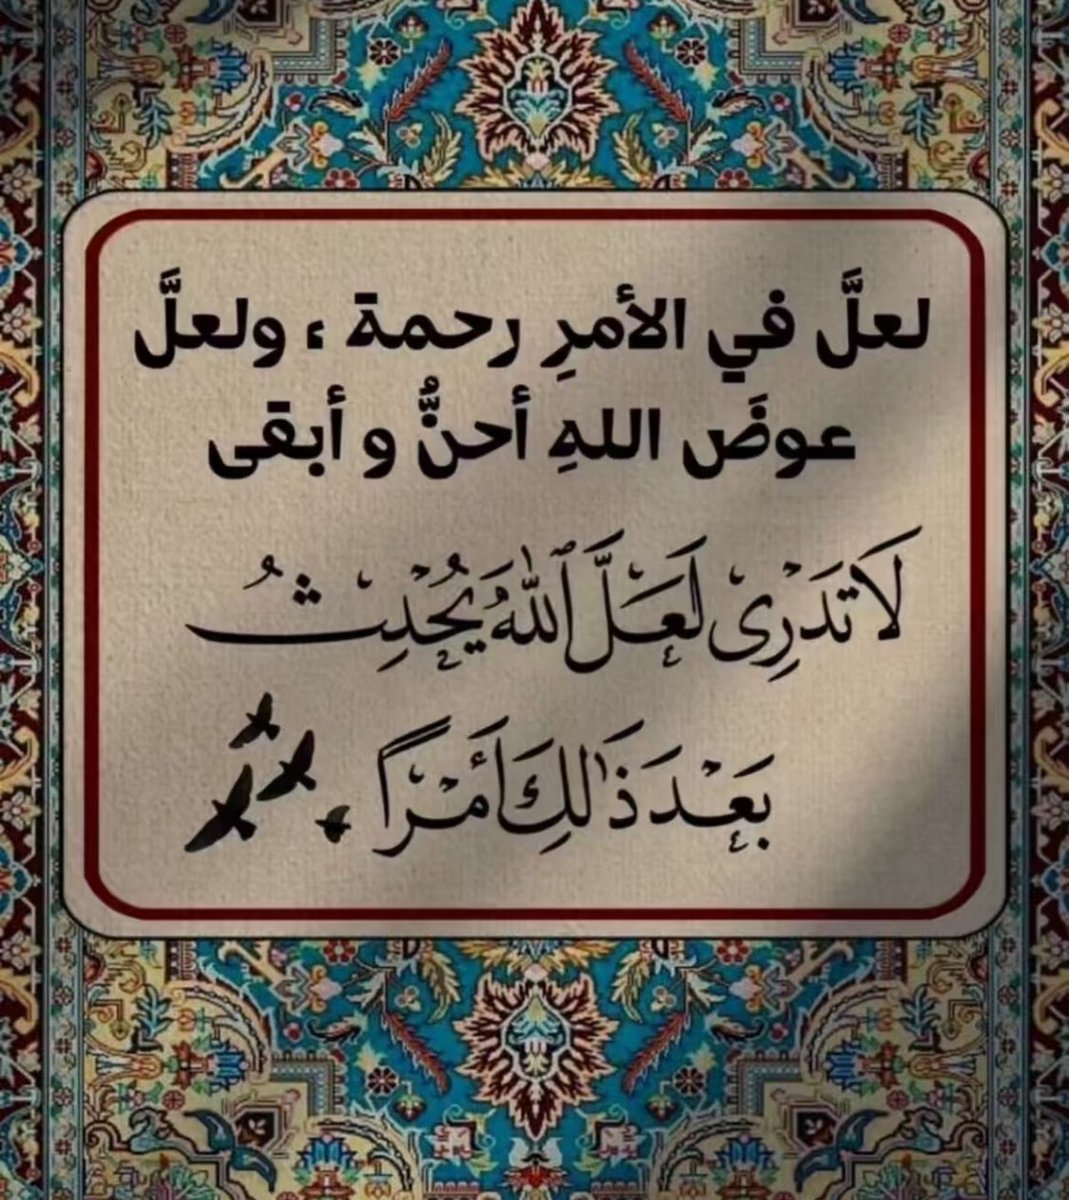 لعلَّ في الأمرِ رحمة ، ولعلَّ
عوضَ اللهِ أحنُّ و أبقى
لَا تَدْرِى لَعَلَّ ٱللَّهَ يُحْدِثُ
بَعْدَ ذَٰلِكَ أَمْرًا